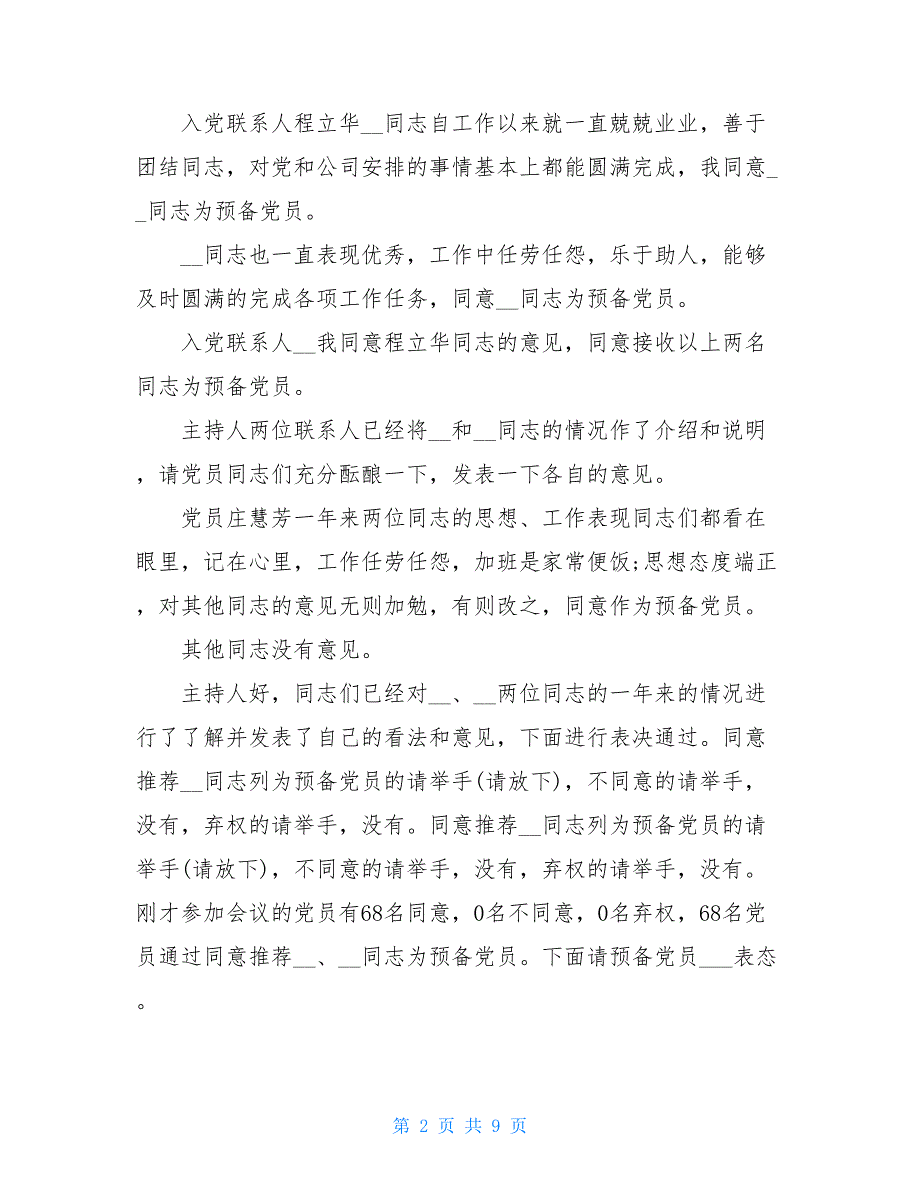 入党联系人程立华__同志自工作以来就一直兢兢业业，善于
团结同志，对党和公司安排的事情基本上都能圆满完成，我同意_
_同志为预备党员。
__同志也一直表现优秀，工作中任劳任怨，乐于助人，能够
及时圆满的完成各项工作任务，同意__同志为预备党员。
入党联系人__我同意程立华同志的意见，同意接收以上两名
同志为预备党员。
主持人两位联系人已经将__和__同志的情况作了介绍和说明
，请党员同志们充分酝酿一下，发表一下各自的意见。
党员庄慧芳一年来两位同志的思想、工作表现同志们都看在
眼里，记在心里，工作任劳任怨，加班是家常便饭;思想态度端正
，对其他同志的意见无则加勉，有则改之，同意作为预备党员。
其他同志没有意见。
主持人好，同志们已经对__、__两位同志的一年来的情况进
行了了解并发表了自己的看法和意见，下面进行表决通过。同意
推荐__同志列为预备党员的请举手(请放下)，不同意的请举手，
没有，弃权的请举手，没有。同意推荐__同志列为预备党员的请
举手(请放下)，不同意的请举手，没有，弃权的请举手，没有。
刚才参加会议的党员有68名同意，0名不同意，0名弃权，68名党
员通过同意推荐__、__同志为预备党员。下面请预备党员___表态
。
第 2 页 共 9 页